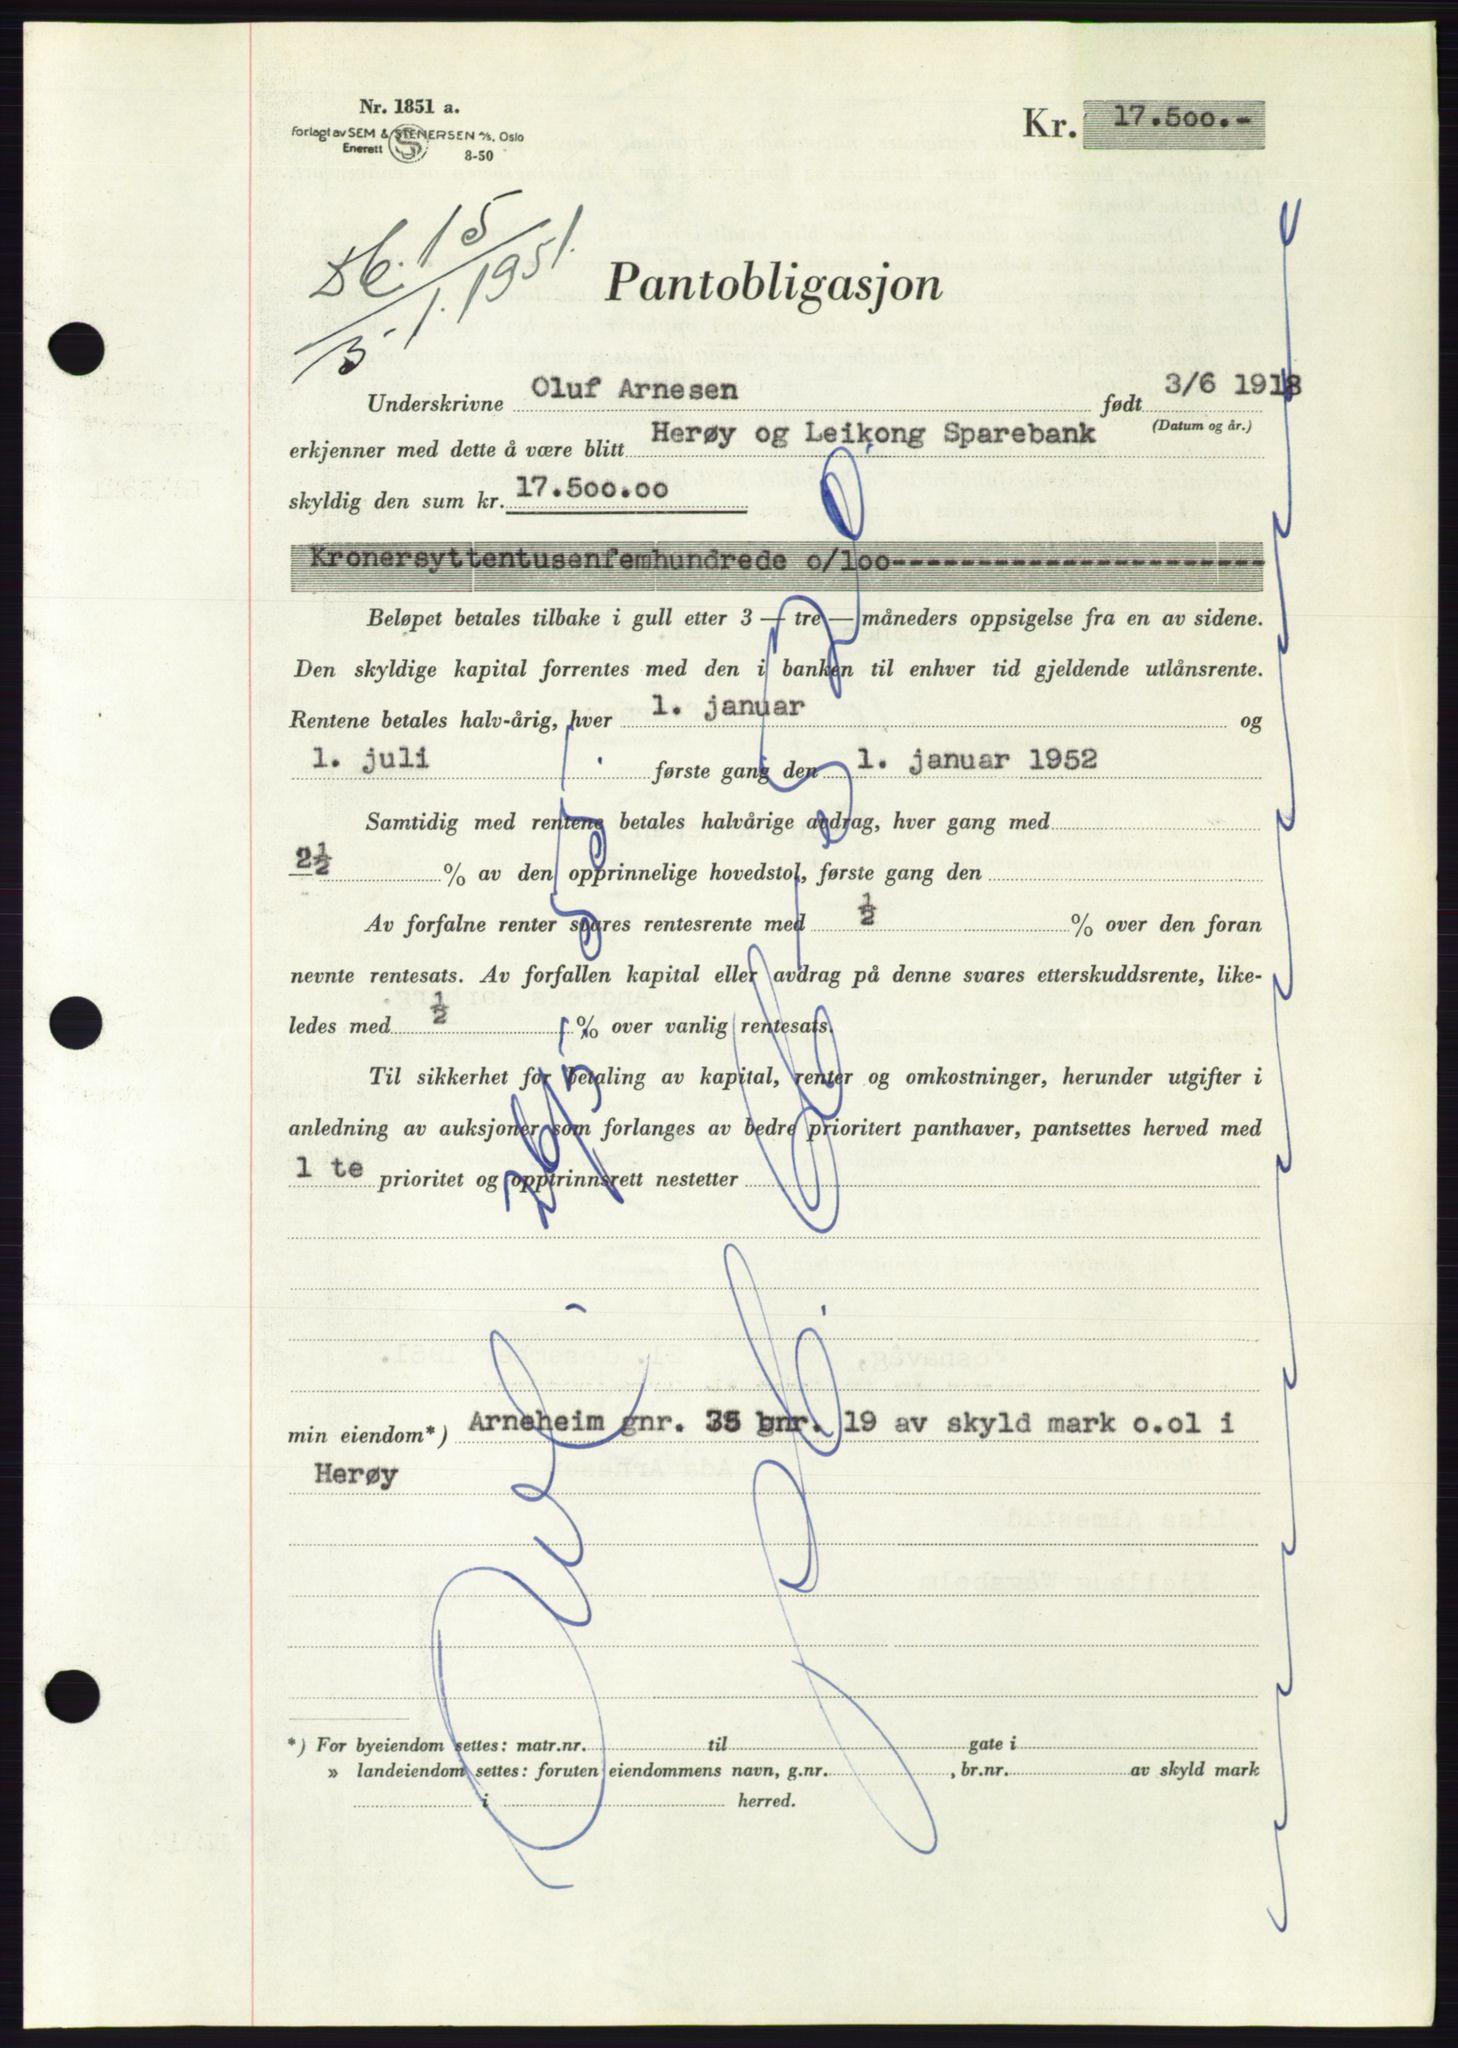 Nr. 1851 a.
Forlagt av SEM & STENERSEN A/S, Oslo
Enerett
8-50
Kr. 17.500.-
15
3/1. 1951.
Pantobligasjon
Underskrivne Oluf Arnesen født 3/6 1918
(Datum og år.)
erkjenner med dette å være blitt Herøy og Leikong Sparebank
skyldig den sum kr. 17.500.00
Kronersyttentusenfemhundrede o/loo-----------------------
Beløpet betales tilbake i gull etter 3 — tre — måneders oppsigelse fra en av sidene.
Den skyldige kapital forrentes med den i banken til enhver tid gjeldende utlånsrente.
Rentene betales halv-årig, hver 1. januar og
1. juli første gang den 1. januar 1952
Samtidig med rentene betales halvårige avdrag, hver gang med
2½ % av den opprinnelige hovedstol, første gang den
Av forfalne renter svares rentesrente med ½ % over den foran
nevnte rentesats. Av forfallen kapital eller avdrag på denne svares etterskuddsrente, like-
ledes med ½ % over vanlig rentesats.
Til sikkerhet for betaling av kapital, renter og omkostninger, herunder utgifter i
anledning av auksjoner som forlanges av bedre prioritert panthaver, pantsettes herved med
1 te prioritet og opptrinnsrett nestetter
min eiendom*) Arneheim gnr. 35 bnr. 19 av skyld mark o.ol i
Herøy
*) For byeiendom settes: matr.nr. til gate i
» landeiendom settes: foruten eiendommens navn, g.nr. , br.nr. av skyld mark
i herred.